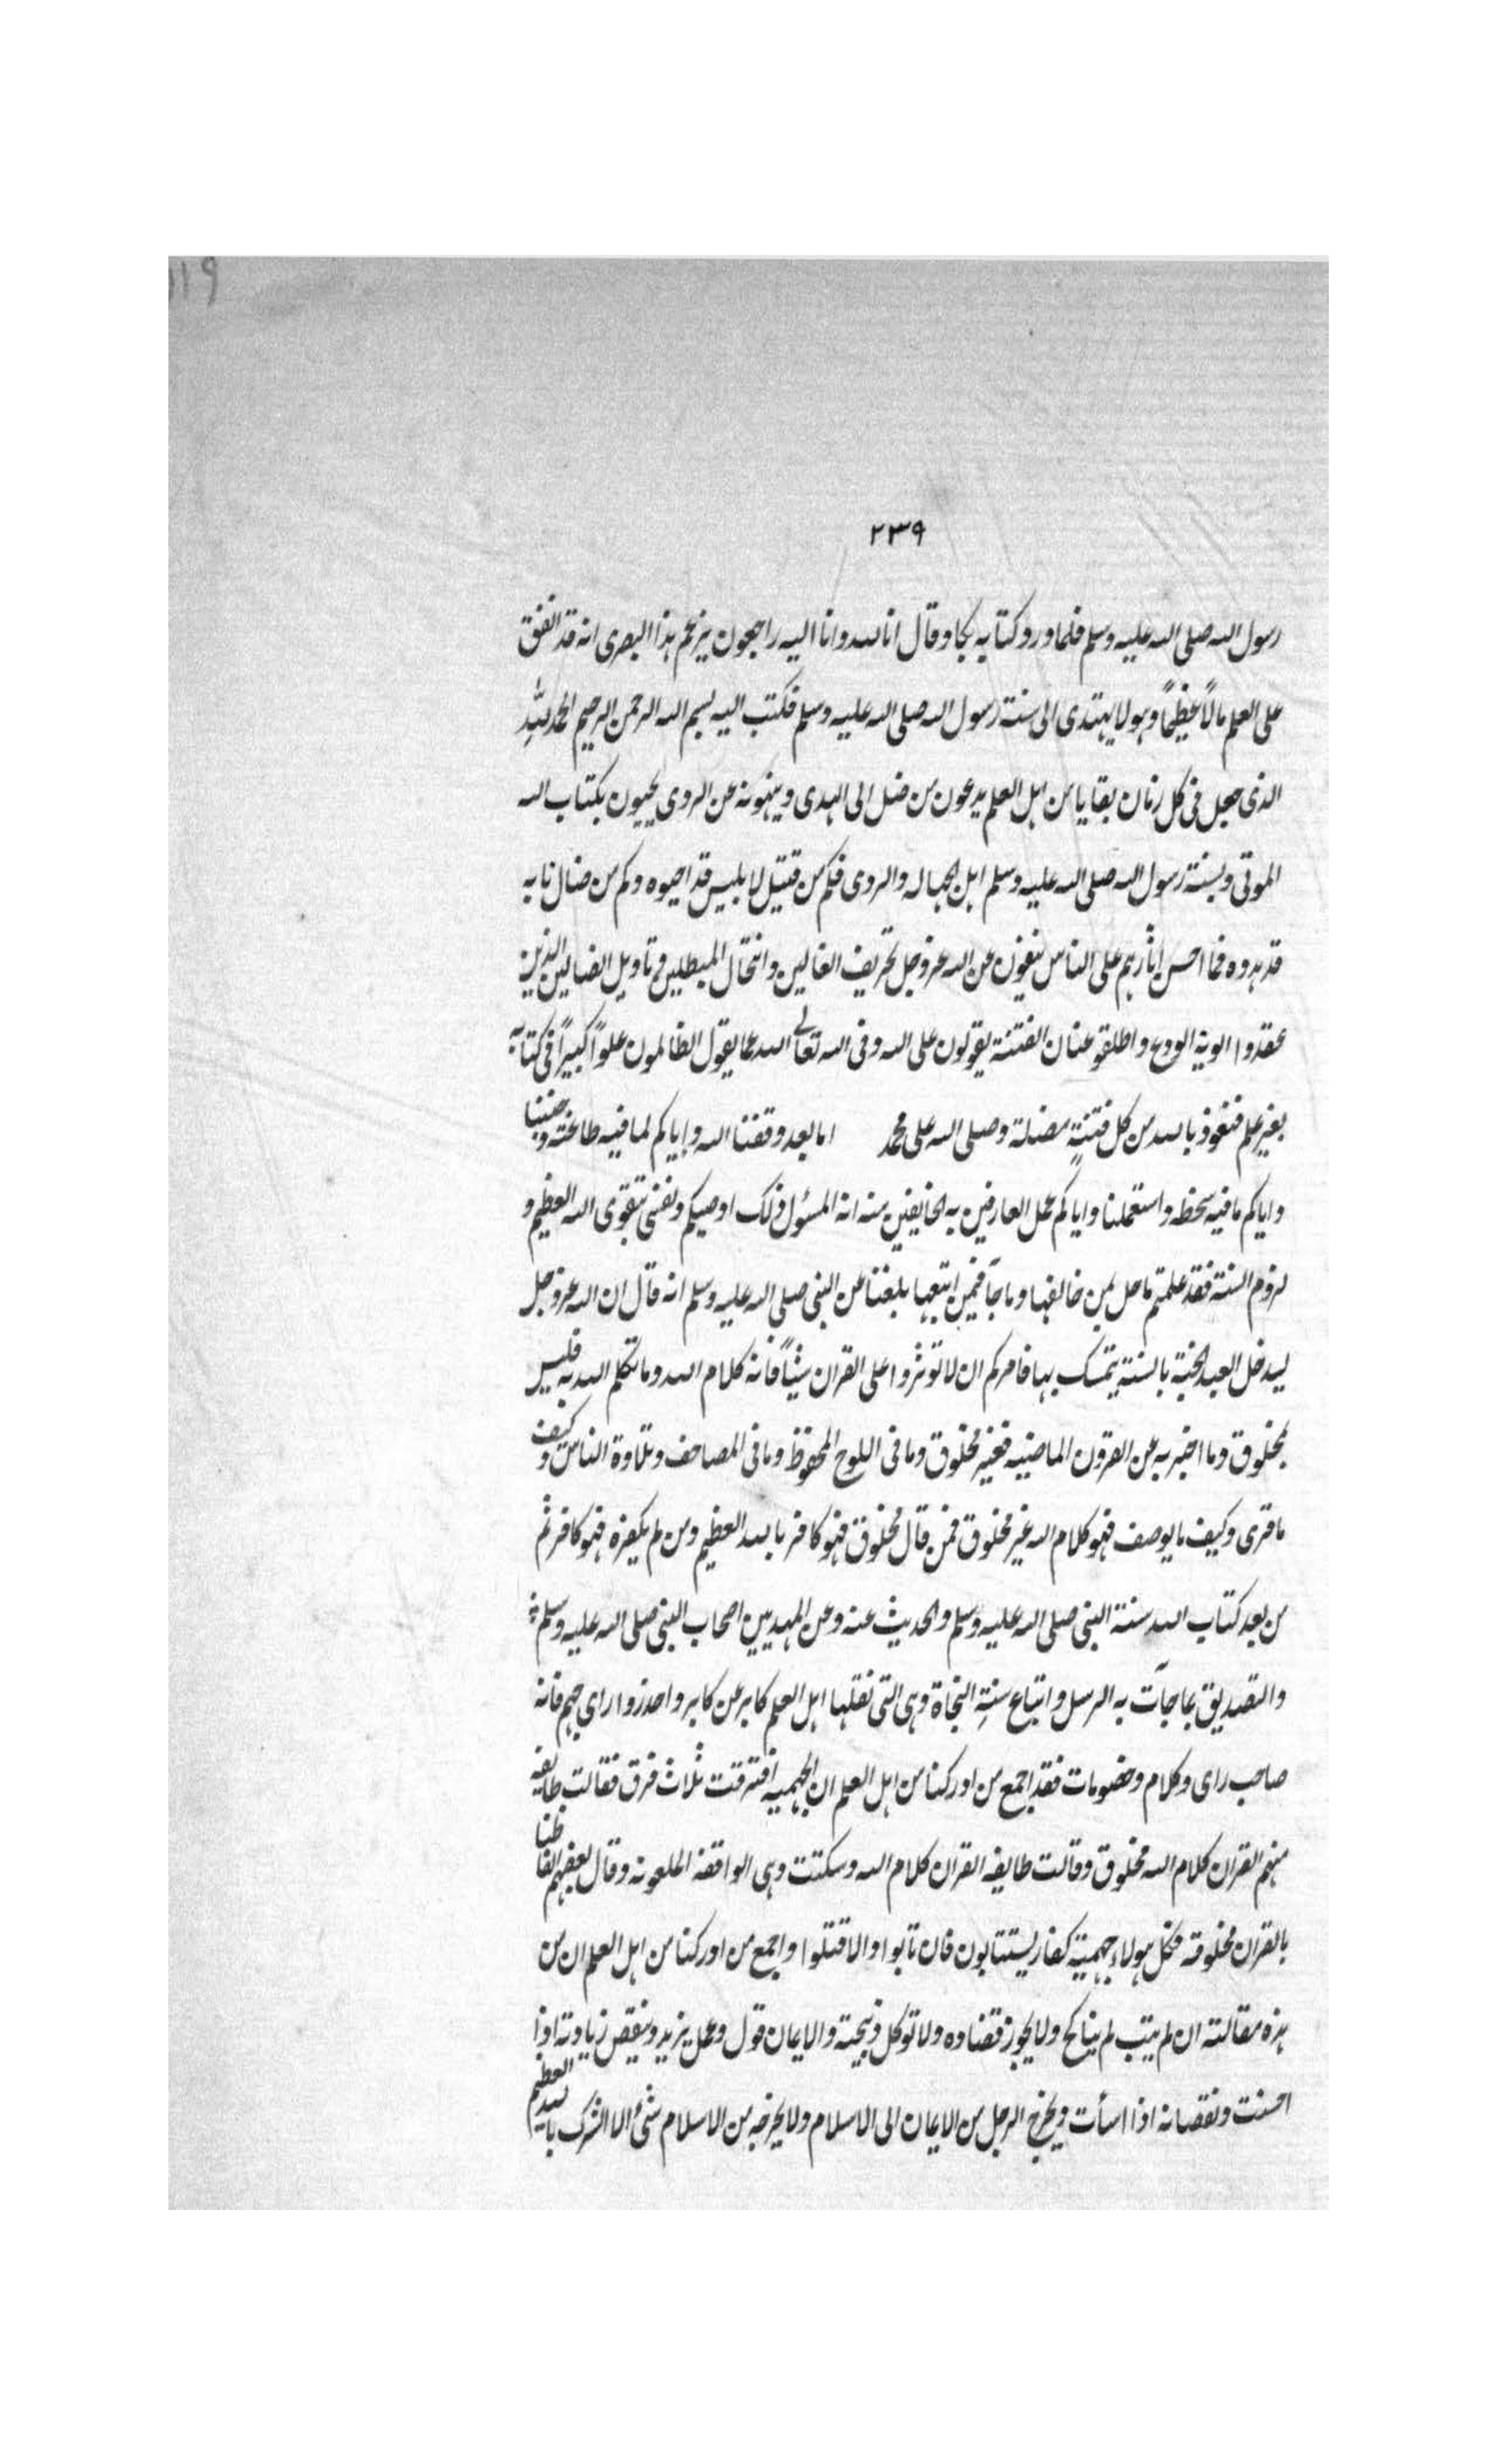 ١١٩
٢٣٩
رسول الله صلى الله عليه وسلم فلما ورد كتابه بكا وقال انا لله وانا اليه راجعون يزعم هذا البصرى انه قد انفق
على العلم مالاً عظيماً وهو لا يهتدى الى سنة رسول الله صلى الله عليه وسلم فكتب اليه بسم الله الرحمن الرحيم الحمد لله
الذى جعل فى كل زمان بقايا من اهل العلم يدعون من ضل الى الهدى وينهونه عن الردى يحيون بكتاب الله
الموتى وبسنة رسول الله صلى الله عليه وسلم اهل الجهاله والردى فكم من قتيل لابليس قد احيوه وكم من ضال تايه
قد هدوه فما احسن اثارهم على الناس ينفون عن الله عز وجل تحريف الغالين وانتحال المبطلين وتاويل الضالين الذين
عقدوا الوية البدع واطلقوا عنان الفتنة يقولون على الله وفى الله تعالى الله عما يقول الظالمون علواً كبيراً فى كتابه
بغير علم فنعوذ بالله من كل فتنةٍ مضلة وصلى الله على محمد اما بعد وفقنا الله واياكم لما فيه طاعته وجنبنا
واياكم ما فيه سخطه واستعملنا واياكم عمل العارفين به الخايفين منه انه المسئول ذلك اوصيكم ونفسى بتقوى الله العظيم و
لزوم السنة فقد علمتم ما حل بمن خالفها وما جآ فيمن اتبعها بلغنا عن النبى صلى الله عليه وسلم انه قال ان الله عز وجل
ليدخل العبد الجنة بالسنة يتمسك بها فامركم ان لا توثروا على القران شيئاً فانه كلام الله وما تكلم الله به فليس
بمخلوق وما اخبر به عن القرون الماضيه فغير مخلوق وما فى اللوح المحفوظ وما فى المصاحف وتلاوة الناس وكيف
ما قرى وكيف ما يوصف فهو كلام الله غير مخلوق فمن قال مخلوق فهو كافر بالله العظيم ومن لم يكفره فهو كافر ثم
من بعد كتاب الله سنة النبى صلى الله عليه وسلم والحديث عنه وعن المهديين اصحاب النبى صلى الله عليه وسلم
والتصديق بما جآت به الرسل واتباع سنةِ النجاة وهى التى نقلها اهل العلم كابر عن كابر واحذروا راى جهم فانه
صاحب راى وكلام وخصومات فقد اجمع من ادركنا من اهل العلم ان الجهمية افترقت ثلاث فرق فقالت طايفه
منهم القران كلام الله مخلوق وقالت طايفه القران كلام الله وسكتت وهى الواقفة الملعونه وقال بعضهم الفاظنا
بالقران مخلوقه فكل هولاء جهمية كفار يستتابون فان تابوا والا قتلوا واجمع من ادركنا من اهل العلم ان من
هذه مقالته ان لم يتب لم يناكح ولا يجوز قضاوه ولا توكل ذبيحته والايمان قول وعمل يزيد وينقص زيادته اذا
احسنت ونقصانه اذا اسأت ويخرج الرجل من الايمان الى الاسلام ولا يخرجه من الاسلام شئ الا الشرك بالله العظيم